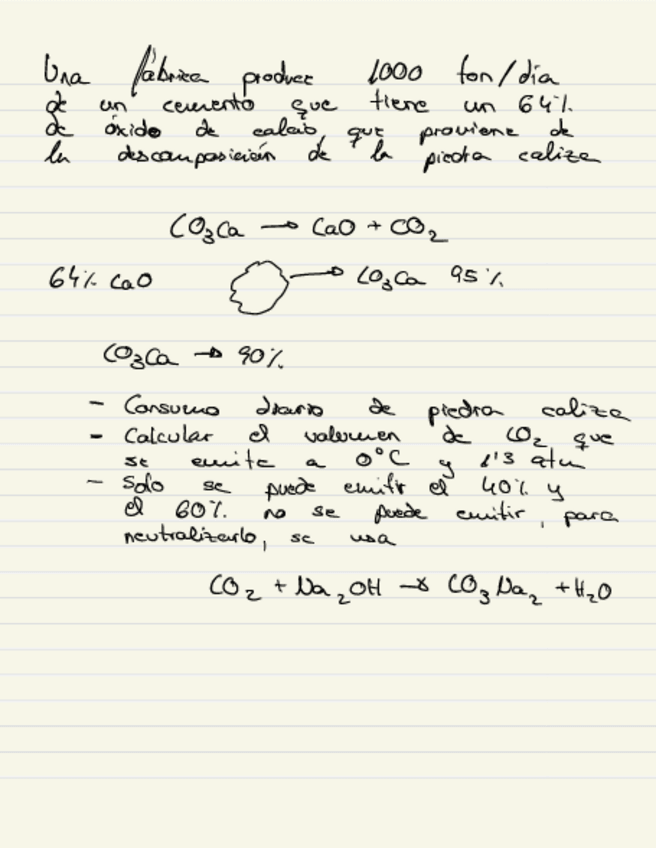 Una fábrica produce 1000 ton/día
de un cemento que tiene un 64%
de óxido de calcio, que proviene de
la descomposición de la piedra caliza
CO₃Ca → CaO + CO₂
64% CaO → CO₃Ca 95%
CO₃Ca → 90%
- Consumo diario de piedra caliza
- Calcular el volumen de CO₂ que
se emite a 0°C y 1'3 atm
- Solo se puede emitir el 40% y
el 60% no se puede emitir, para
neutralizarlo, se usa
CO₂ + Na₂OH → CO₃Na₂ + H₂O